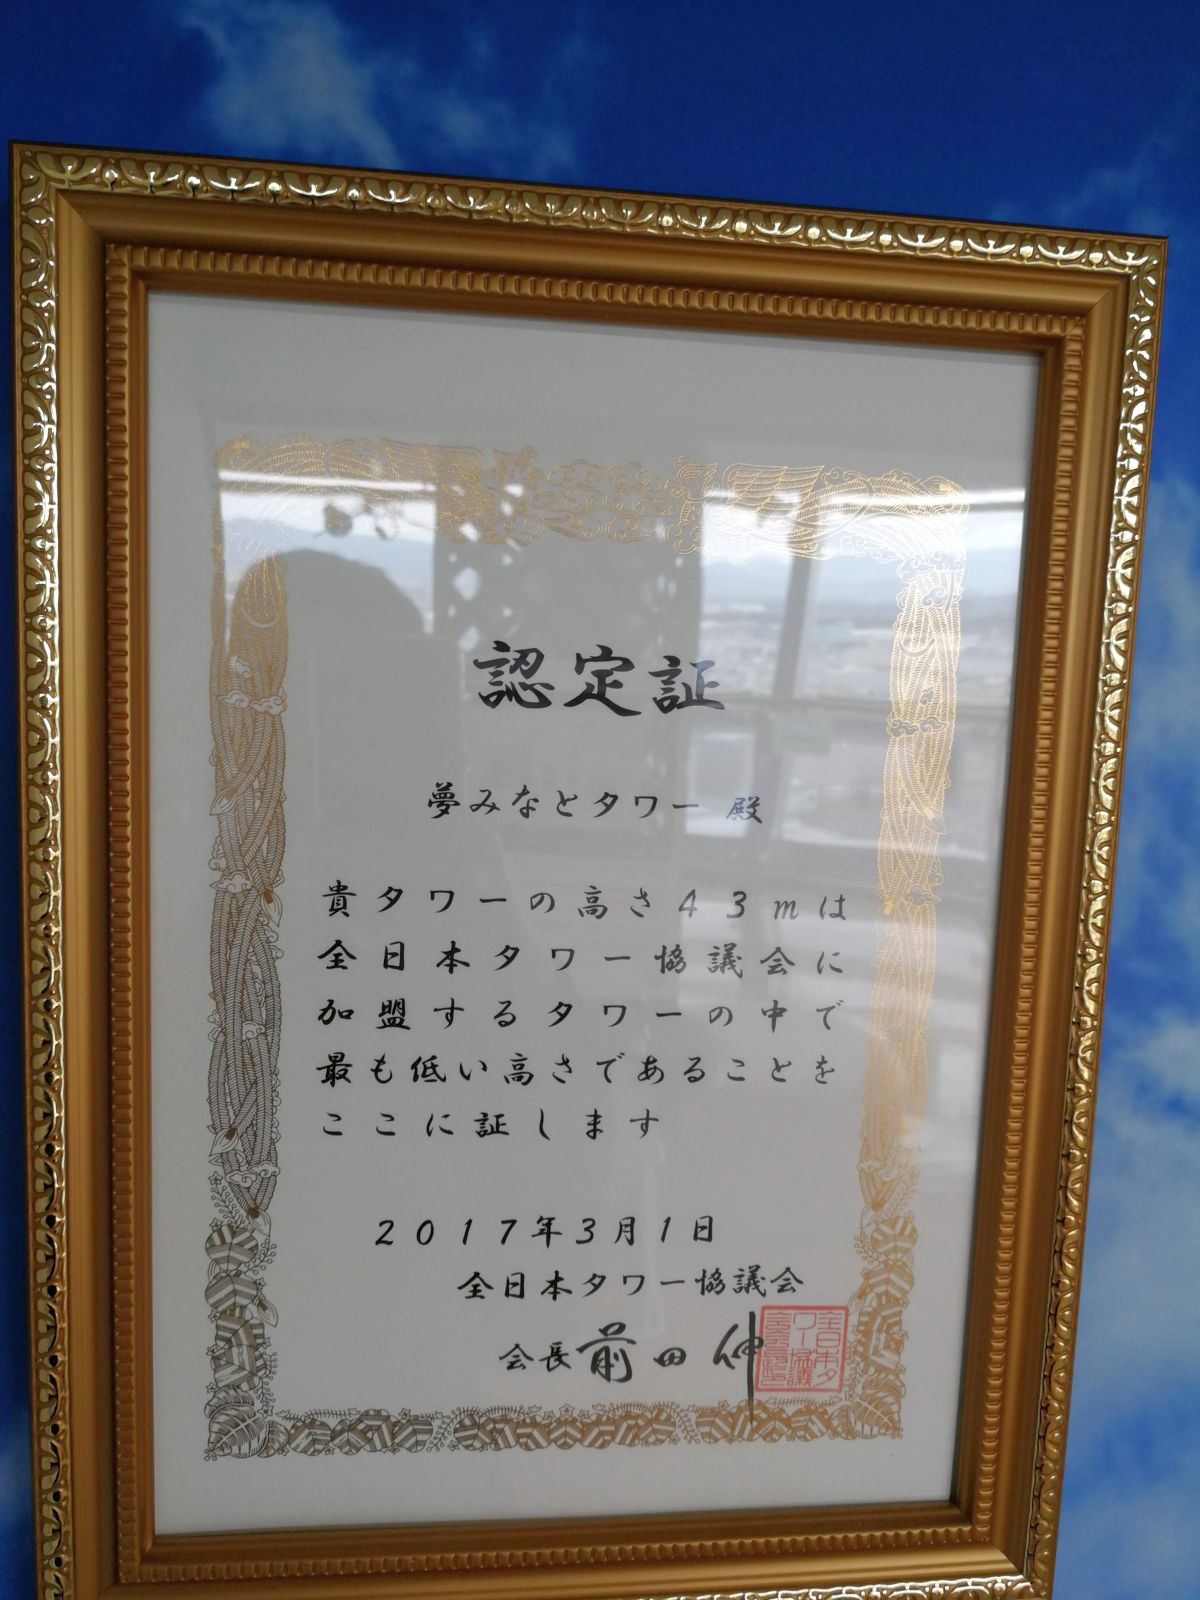 認定証
夢みなとタワー 殿
貴タワーの高さ43mは
全日本タワー協議会に
加盟するタワーの中で
最も低い高さであることを
ここに証します
2017年3月1日
全日本タワー協議会
会長 前田 伸